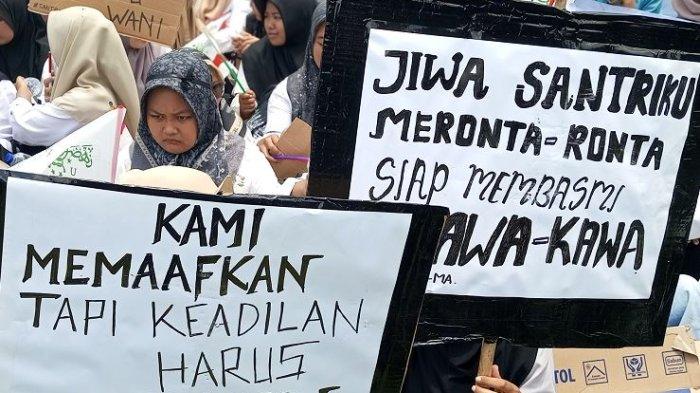 WANI
JIWA SANTRIKU
MERONTA-RONTA
SIAP MEMBASMI
AWA-KAWA
-MA.
KAMI
MEMAAFKAN
TAPI KEADILAN
HARUS
TOL